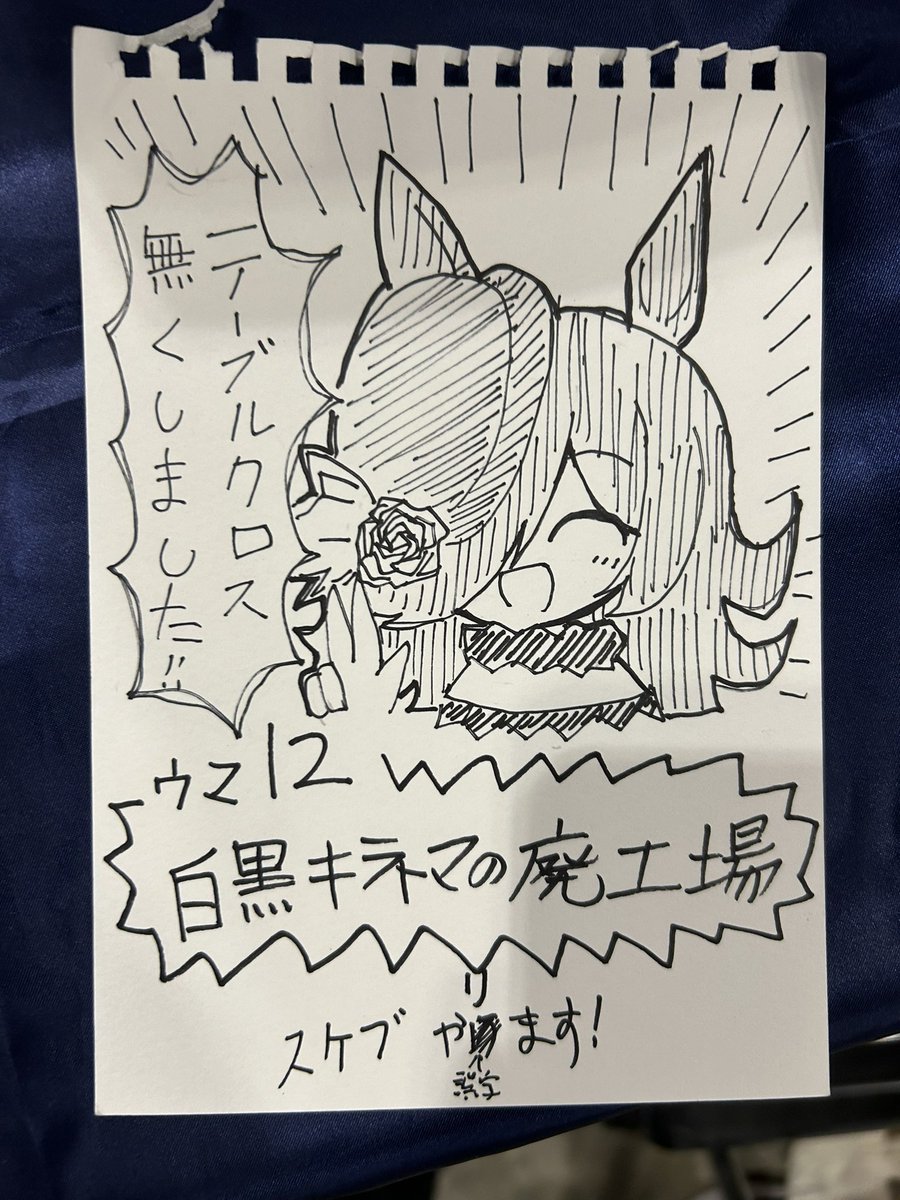 テーブルクロス
無くしました!!
ウマ12
白黒キネマの廃工場
リ
スケブ やます!
誤字